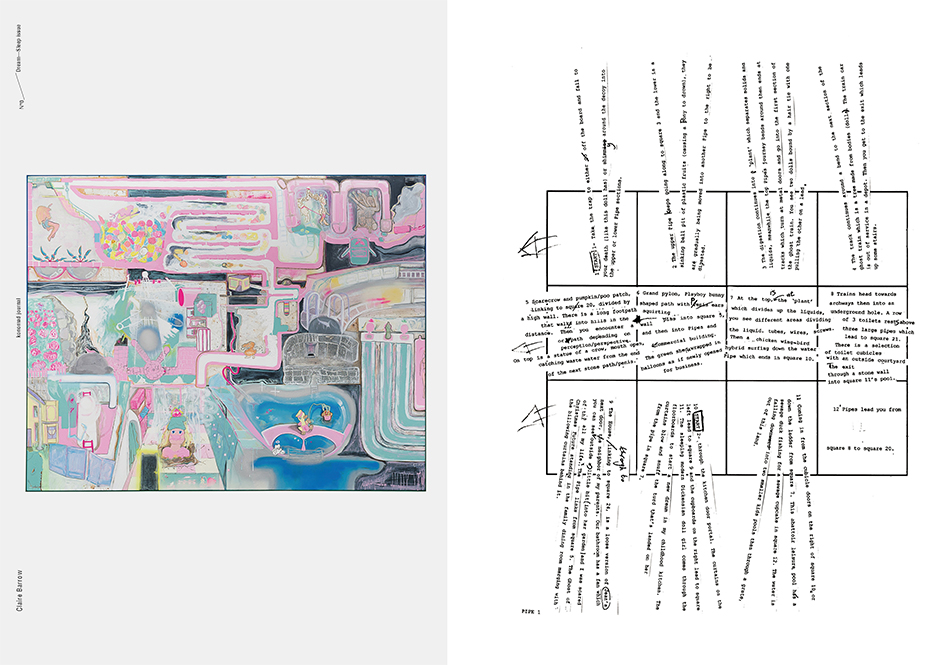 Dream—Sleep Issue
journal
Claire Barrow
1 START: Take the step to either off the board and fall to
you death (like this doll has) or around the decoy into
the upper or lower Pipe sections.
2 The upper Pipe keeps going along to square 3 and the lower is a
sinking ball pit of plastic fruits (causing a body to drown), they
are gradually being moved into another Pipe to the right to be
digested.
3 The digestion continues into a 'plant' which separates solids and
liquids, meanwhile the top Pipe's journey bends around then ends at
tracks which turn at metal doors and go into the first section of
the ghost train. You see two dolls bound by a hair tie with one
pulling the other on a lead.
4 The track continues around a bend to the next section of the
ghost train which is a tree made from bodies (dolls). The train car
is out of service in a depot. Then you get to the exit which leads
up some stairs.
5 Scarecrow and pumpkin/poo patch,
linking to square 20, divided by
a high wall. There is a long footpath
that walks into hills in the
distance. Then you encounter a wall
or path depending on
perception/perspective.
On top is a statue of a crow, mouth open,
catching waste water from the end
of the next stone path/penis.
6 Grand pylon, Playboy bunny
shaped path with ears
squirting
piss into square 5,
and then into Pipes and
commercial building.
The green shed wrapped in
balloons as if newly opened
for business.
7 At the top, the 'plant'
which divides up the liquids,
you see different areas dividing
the liquid. tubes, wires,
Then a chicken wing+bird
hybrid surfing down the water
Pipe which ends in square 10.
8 Trains head towards
archways then into an
underground hole. A row
of 3 toilets rest above
three large pipes which
lead to square 21.
There is a selection
of toilet cubicles
with an outside courtyard
the exit
through a stone wall
into square 11's pool.
9 The house, linking to square 24, is a loose version of
next door, the neighbour of my parents. Our bathroom has a fan which
you can see outside a little bit into her garden and I was scared
of it all my life. The Pipe links from square 5. The Ghost of
Christmas Future standing in the family dining room merging with
the billowing curtains behind it.
10 , through the kitchen door portal. The curtains on the
left lead to square 9 and the cupboards on the right lead to square
11. The sleeping modern Dickensian doll girl comes through the
floorboards to visit new dream in my childhood kitchen. The
curtains blow and snort the turd that's landed on her
from the Pipe in square 7.
11 Coming in from the cubicle doors on the right of square 10, or
down the ladder from square 7. This abattoir leisure pool has a
sewage duck fishing for a sewage cupcake in square 12. The water is
falling into two smaller kids pools then through a grate,
out of this land.
12 Pipes lead you from
square 8 to square 20.
PIPE 1